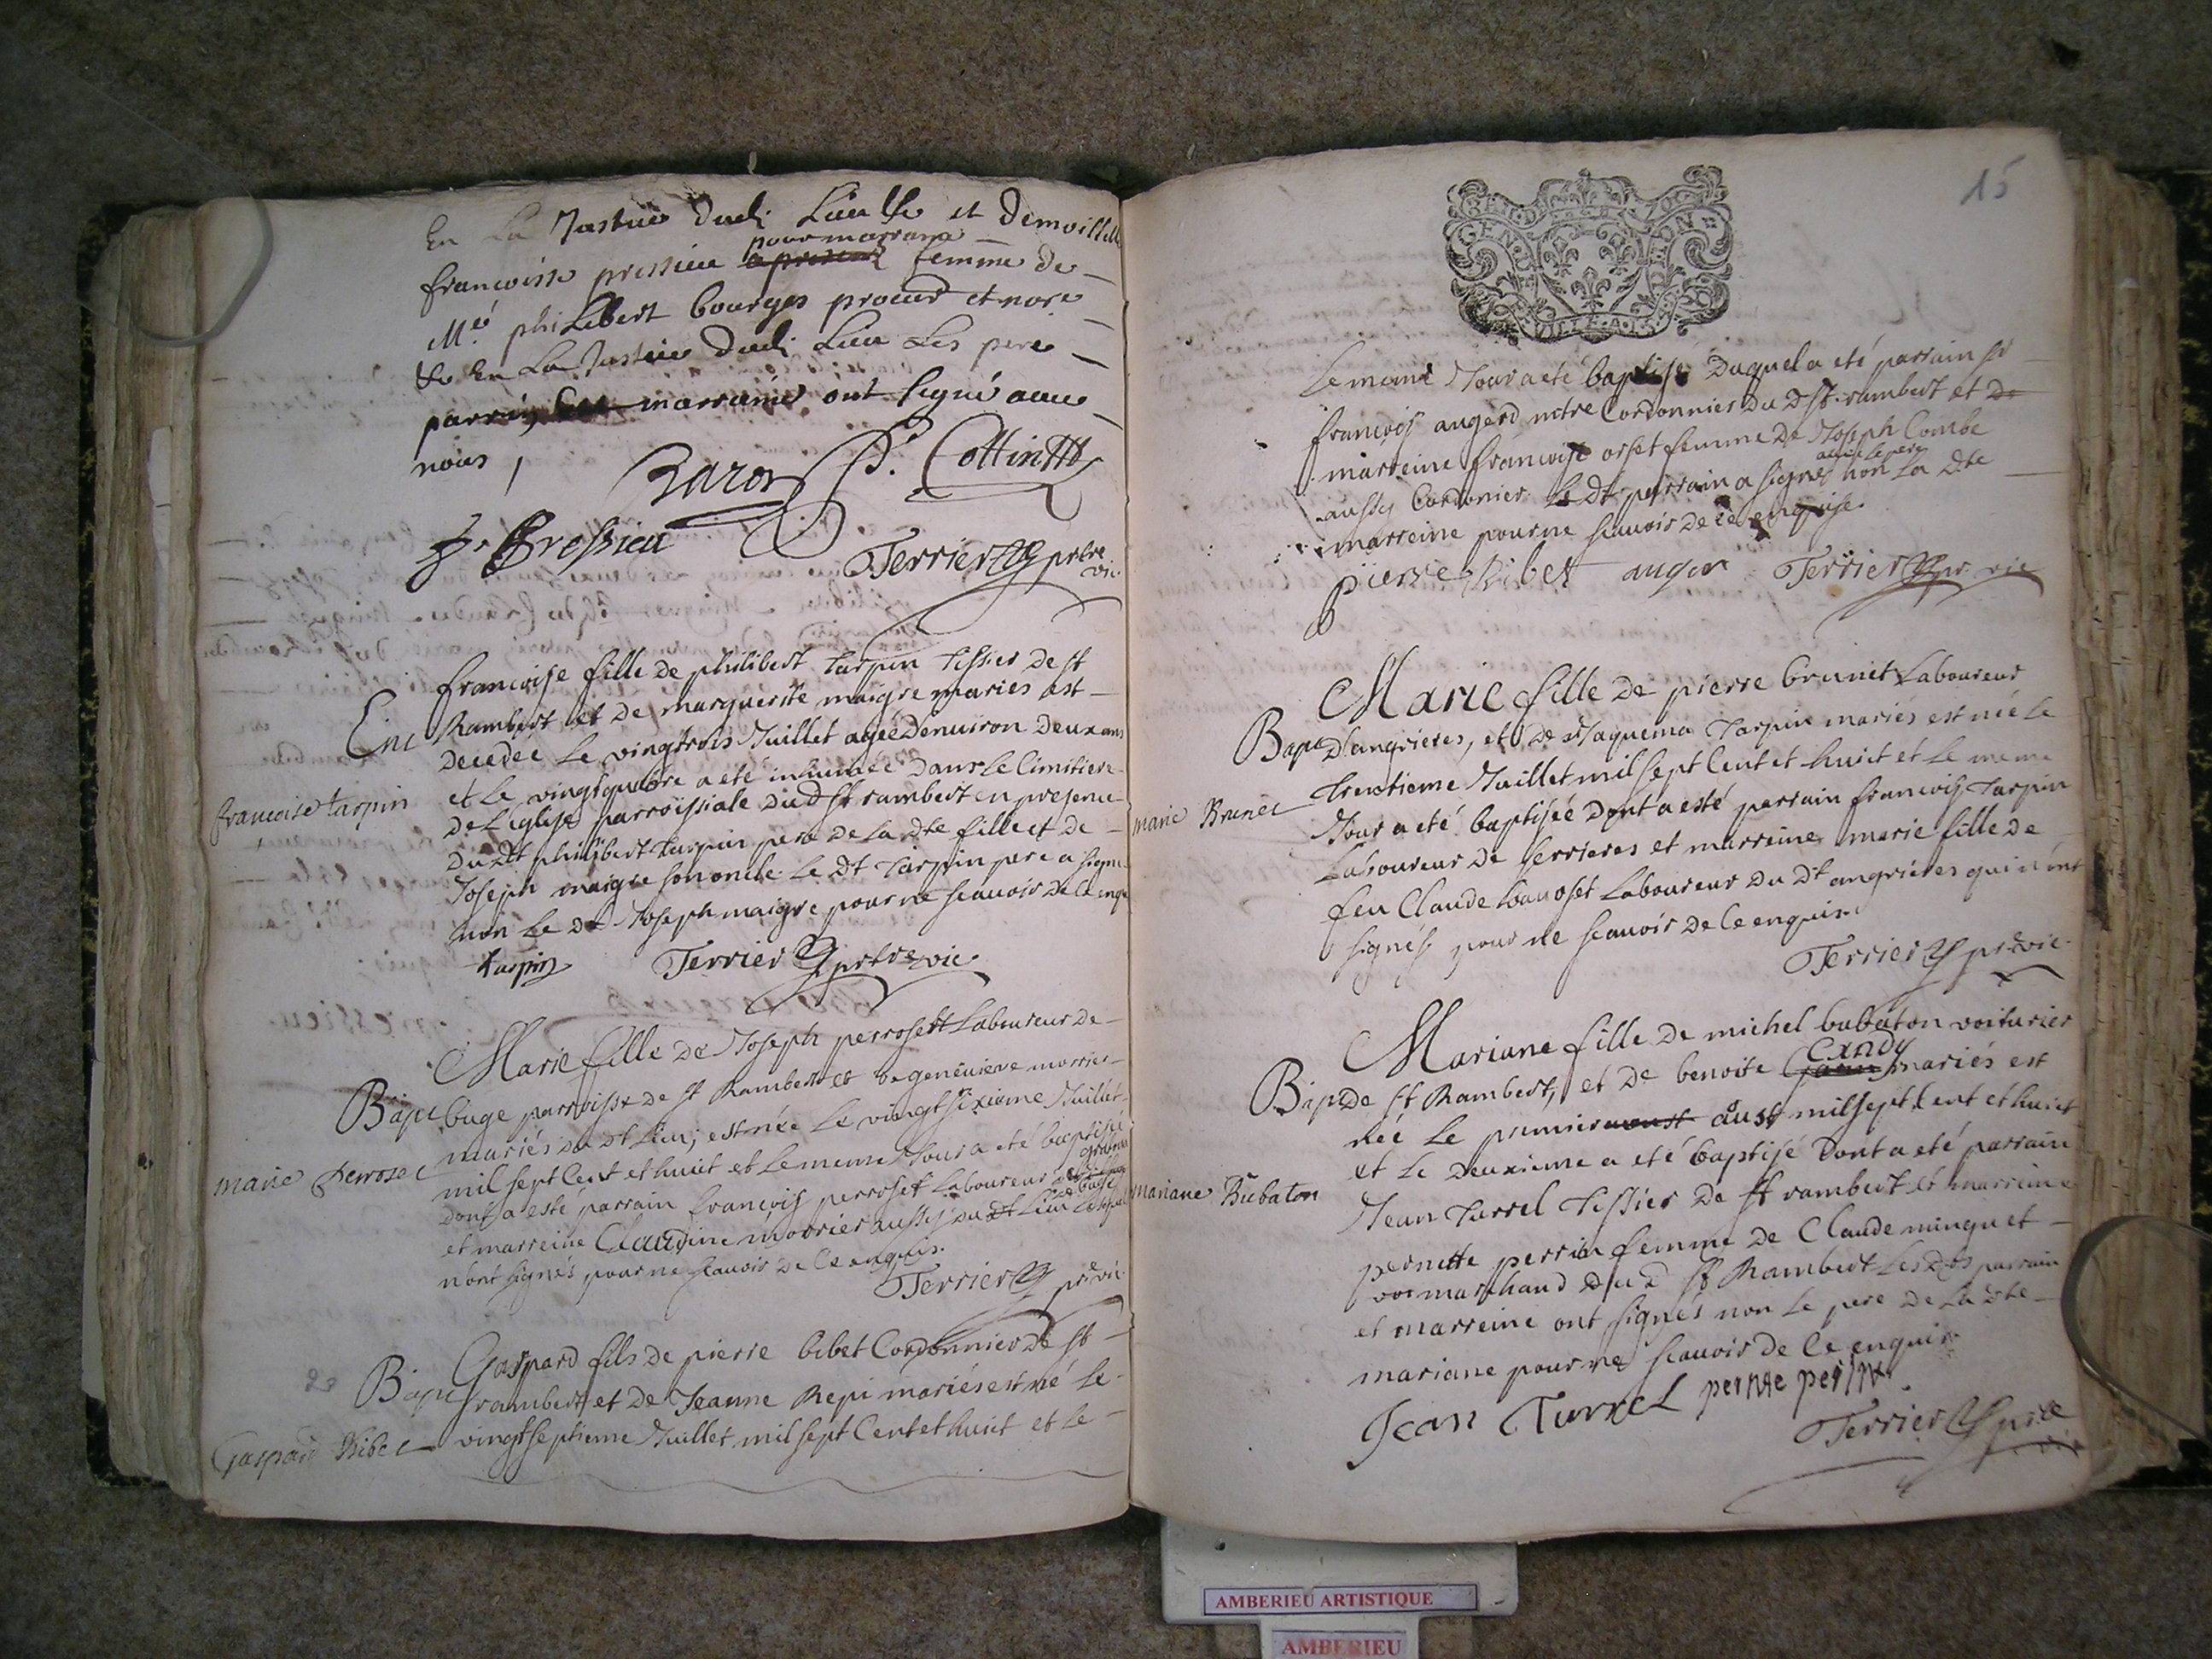 En La Justice dudi Lieu Et Demoiselle
francoise pressieu pour marraine femme de
Me philibert bourges procur et nore
En La Justice dudi Lieu Les pere
parrin marraine ont signé avec
nous,
Baron P. Cottin
f. Bressieu
Terrier prtre vic.
francoise fille de philibert tarpin tissier de st
Ent Rambert et de marguerite maigre mariés est
decedée le vingttrois Juillet agée denuiron deux ans
et le vingtquatre a eté inhumée dans le Cimitiere
francoise tarpin
de L'eglise parroissiale dud st rambert en presence
Dudt philibert tarpin pere de la dte fille et de
Joseph maigre son oncle. le dt tarpin pere a signé
non le dt Joseph maigre pour ne scauoir de ce enquis
tarpin Terrier prtre vic
Marie fille de Joseph perroset Laboureur de
Bapt buge parroisse de st Rambert et de geneuieve morrier
mariés du dt lieu, est née le vingtsixieme Juillet
marie Perroset
mil sept Cent et huict et le meme Jour a eté baptisée
dont a esté parrain francois perroset Laboureur
et marreine Claudine morrier aussy du dt lieu
n'ont signés pour ne scauoir de ce enquis.
Terrier pr vic
Gaspard fils de pierre bibet Cordonnier de st
Bapt rambert et de Jeanne Repi mariés est né le
Gaspard Bibet
vingtseptieme Juillet mil sept Cent et huict et le
15
GEN DE
le meme Jour a eté baptisé Duquel a eté parrain sr
francois augerd mtre Cordonnier du d st. rambert et de
marreine francoise orset femme de Joseph Combe
aussy Cordonier le dt parrain a signé avec le pere non la dte
marreine pour ne scauoir de ce enquise.
pierre Bibet auger Terrier pr. vic
Marie fille de pierre brunet Laboureur
Bapt d'angrieres, et de Jaquema Tarpin mariés est née le
trentieme Juillet mil sept Cent et huict et le meme
marie Brunet
Jour a eté baptisée dont a esté parrain francois Tarpin
Laboureur de serrieres et marreine marie fille de
feu Claude Laboureur du dt angrieres qui n'ont
signés pour ne scauoir de ce enquis.
Terrier pr vic.
Mariane fille de michel bubaton voiturier
Bapt de st Rambert, et de benoite Candy mariés est
née le premier aust mil sept Cent et huict
et le deuxieme a eté baptisé Dont a eté parrain
mariane Bubaton
Jean Turrel Tissier de st rambert et marreine
pernette perrin femme de Claude minguet
marchand du d st Rambert lesdts parrain
et marreine ont signés non le pere de la dte
mariane pour ne scauoir de ce enquis.
Jean Turrel pernte perin
Terrier prtre vic
AMBERIEU ARTISTIQUE
AMBERIEU